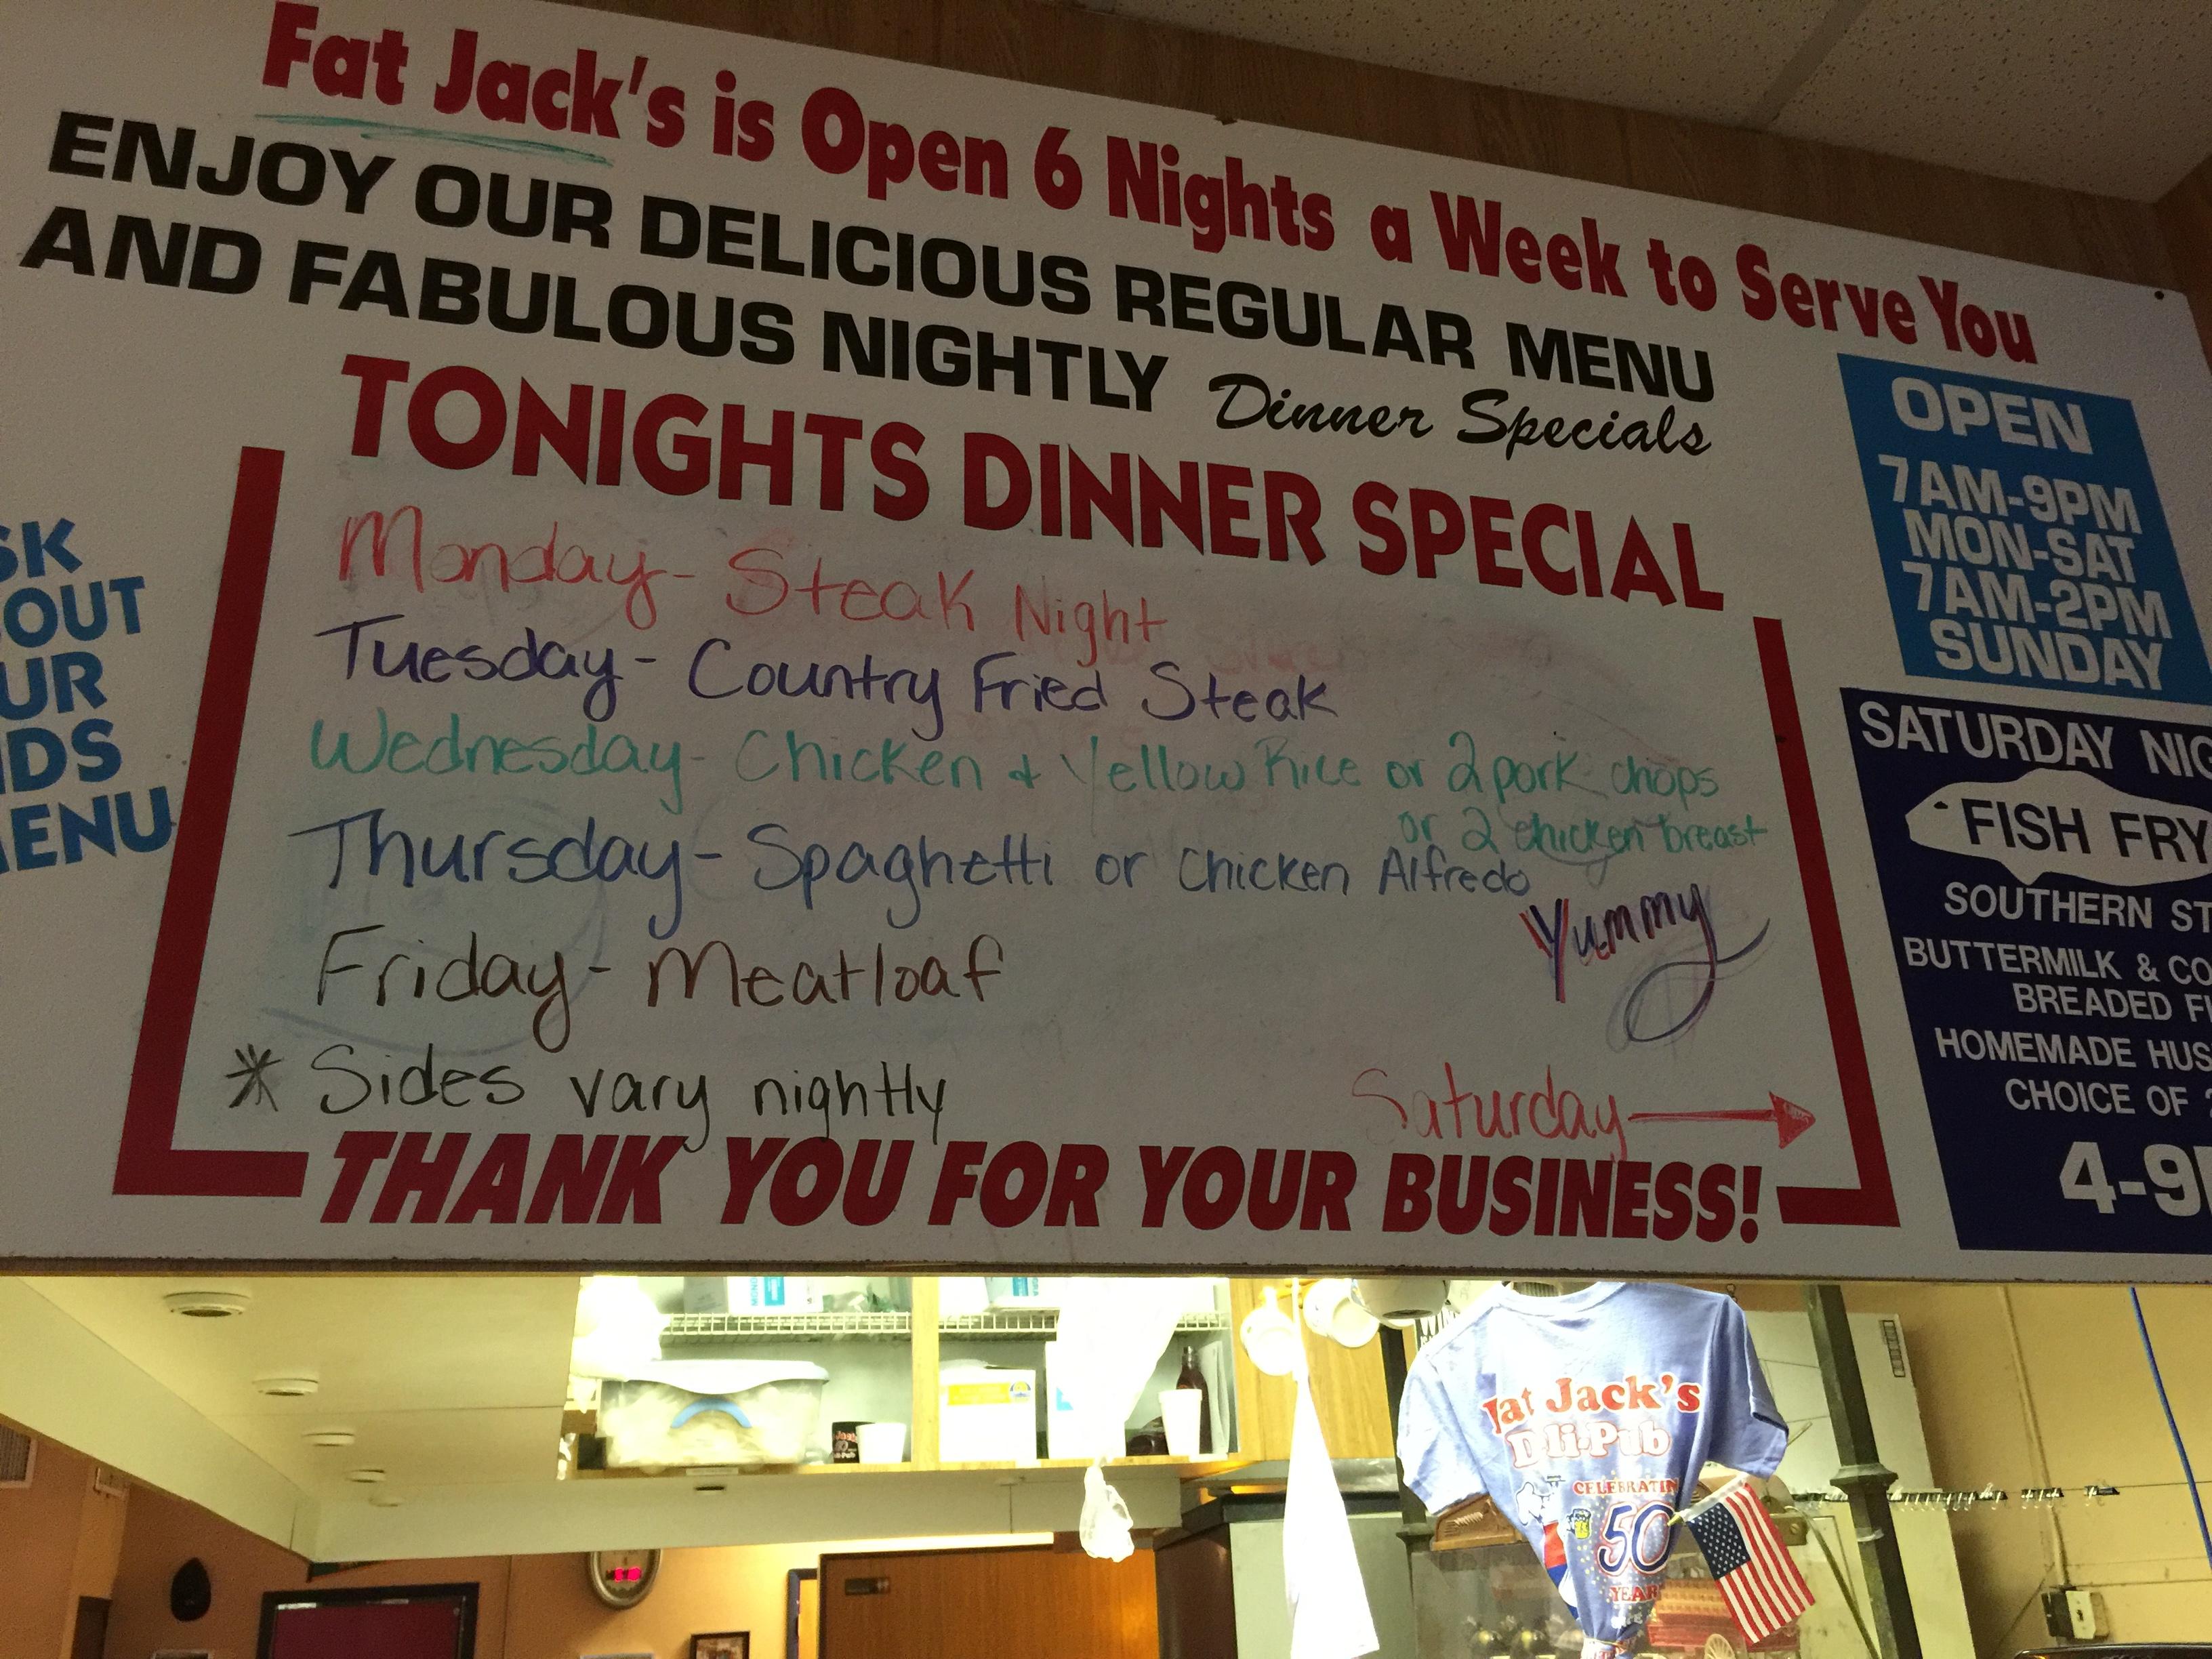 Fat Jack's is Open 6 Nights a Week to Serve You
ENJOY OUR DELICIOUS REGULAR MENU
AND FABULOUS NIGHTLY Dinner Specials
TONIGHTS DINNER SPECIAL
Monday - Steak Night
Tuesday - Country Fried Steak
Wednesday - Chicken & Yellow Rice or 2 pork chops
or 2 chicken breast
Thursday - Spaghetti or Chicken Alfredo
Yummy
Friday - Meatloaf
* Sides vary nightly
Saturday
THANK YOU FOR YOUR BUSINESS!
SK
OUT
UR
IDS
MENU
OPEN
7AM-9PM
MON-SAT
7AM-2PM
SUNDAY
SATURDAY NIG
FISH FRY
SOUTHERN ST
BUTTERMILK & CO
BREADED FI
HOMEMADE HUS
CHOICE OF
4-9
Fat Jack's
Deli-Pub
CELEBRATIN
50
YEAR